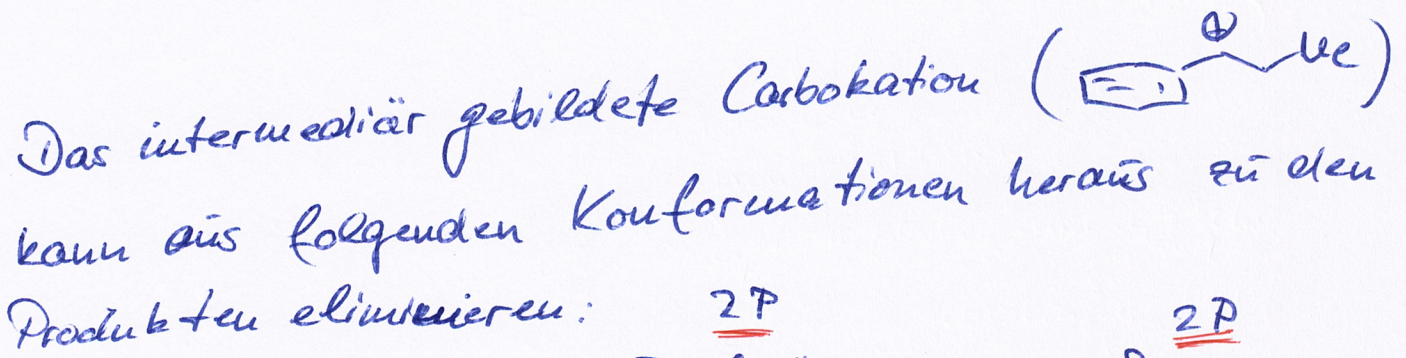 Das intermediär gebildete Carbokation ( ⊕ Me )
kann aus folgenden Konformationen heraus zu den
Produkten eliminieren: 2P 2P